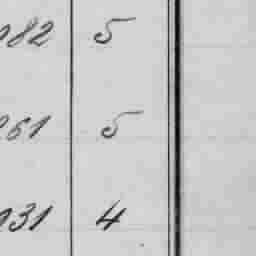 182 5
261 5
131 4